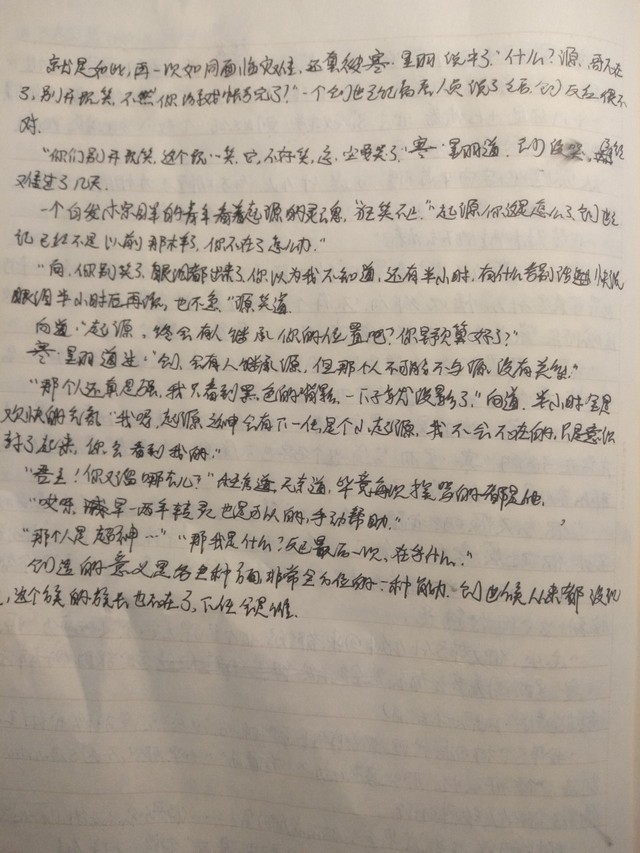 就是如此,再一次如同面临灾难,还真被寒·星羽说中了"什么?源,尚不在
了,别开玩笑,不然你游戏帐号完了?"一个创世主纪高层人员说了之后,创反应很不
对。
"你们别开玩笑,这个玩一笑,它,不好笑,这,尘哭了"寒·星羽道.
又度过了几天.
一个白发水字母羊的青年看着起源的灵魂,狂笑不止."起源,你这是怎么了,创世
记已经不是以前那样了,你不在了怎么办."
"向,你别笑了,眼泪都出来了,你以为我不知道,还有半小时,有什么告别话赶快说
眼泪半小时后再流,也不急."源笑道
向道:"起源,终会有人继承你的位置吧?你早预算好了?"
寒·星羽道:"创,会有人继承源,但那个人不可能不与源没有关系."
"那个人还真是强,我只看到黑色的背影,一下子就没影了."向道.半小时全是
欢快的气氛"我呀,起源,这神会有下一任,是个小起源,我不会不在的,只是意识
封了起来,你会看到我的."
"吾主!你又溜哪去了?"无奈道,毕竟每次挨骂的都是他.
"哎呀,早一两年转灵也是可以的,手动帮助."
"那个人是超神…""那我是什么?反正最后一次,在乎什么."
创造的意义是各史种方面,非常全方位的一种能力.创世候从来都没机
,这个族的族长也不在了,下任会是谁.